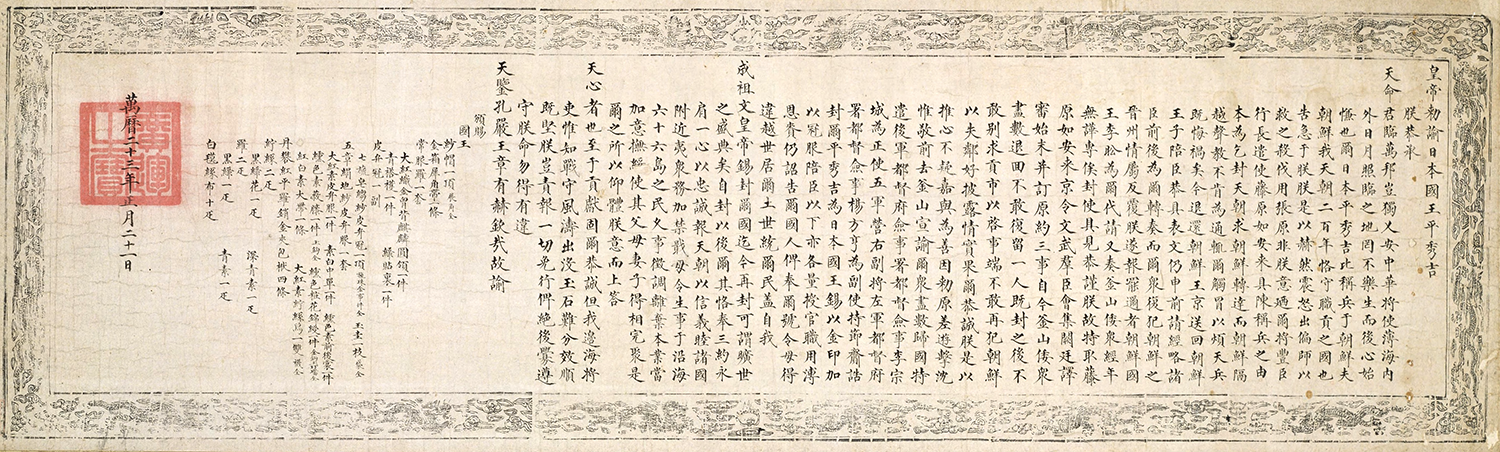 皇帝勅諭日本國王平秀吉
朕恭承
天命君臨萬邦豈獨乂安中華將使濱海內
外日月照臨之地罔不樂生而後心始
慊也爾日本平秀吉比稱兵于朝鮮夫
朝鮮我天朝二百年恪守職貢之國也
告急于朕朕是以赫然震怒出偏師以
救之殺伐用張原非朕意廼爾將豐臣
行長遣使藤原如安來具陳稱兵之由
本為乞封天朝求朝鮮轉達而朝鮮隔
越聲教不肯為通輒爾觸冐以煩天兵
既悔禍矣今退還朝鮮王京送回朝鮮
王子陪臣恭具表文仍申前請經略諸
臣前後為爾轉奏而爾衆復犯朝鮮之
晉州情屬反覆朕遂報罷邇者朝鮮國
王李昖為爾代請又奏釜山倭衆經年
無譁專俟封使具見恭謹朕故特取藤
原如安來京令文武群臣會集闕廷譯
審始末并訂原約三事自今釜山倭衆
盡數退回不敢復留一人既封之後不
敢別求貢市以啓事端不敢再犯朝鮮
以失鄰好披露情實果爾恭誠朕是以
推心不疑嘉與為善因勅原差遊擊沈
惟敬前去釜山宣諭爾衆盡數歸國特
遣後軍都督府僉事署都督僉事李宗
城為正使五軍營右副將左軍都督府
署都督僉事楊方亨為副使持節齎誥
封爾平秀吉為日本國王錫以金印加
以冠服陪臣以下亦各量授官職用溥
恩賚仍詔告爾國人俾奉爾號令毋得
違越世居爾土世統爾民蓋自我
成祖文皇帝錫封爾國迄今再封可謂曠世
之盛典矣自封以後爾其恪奉三約永
肩一心以忠誠報天朝以信義睦諸國
附近夷衆務加禁戢毋令生事于沿海
六十六島之民久事徵調離棄本業當
加意撫綏使其父母妻子得相完聚是
爾之所以仰體朕意而上答
天心者也至于貢獻固爾恭誠但我邊海將
吏惟知戰守風濤出沒玉石難分效順
既堅朕豈責報一切免行俾絶後釁遵
守朕命勿得有違
天鑒孔嚴王章有赫欽哉故諭
頒賜
國王
紗帽一頂展角全
金箱犀角帶一條
常服羅一套
大紅織金胷背麒麟圓領一件
青褡𧞤一件 綠貼裏一件
皮弁冠一副
七旒皂縐紗皮弁冠一頂旒珠金事件全 玉圭一枝袋全
五章絹地紗皮弁服一套
大紅素皮弁服一件 素白中單一件
纁色素前後裳一件
纁色素蔽膝一件玉鉤全 纁色粧花錦綬一件金鉤玉玎璫全
紅白素大帶一條 大紅素紵絲舄一雙襪全
丹礬紅平羅銷金夾包袱四條
紵絲二疋
黑綠花一疋 深青素一疋
羅二疋
黑綠一疋 青素一疋
白氁絲布十疋
萬曆二十三年正月二十一日
廣運之寶